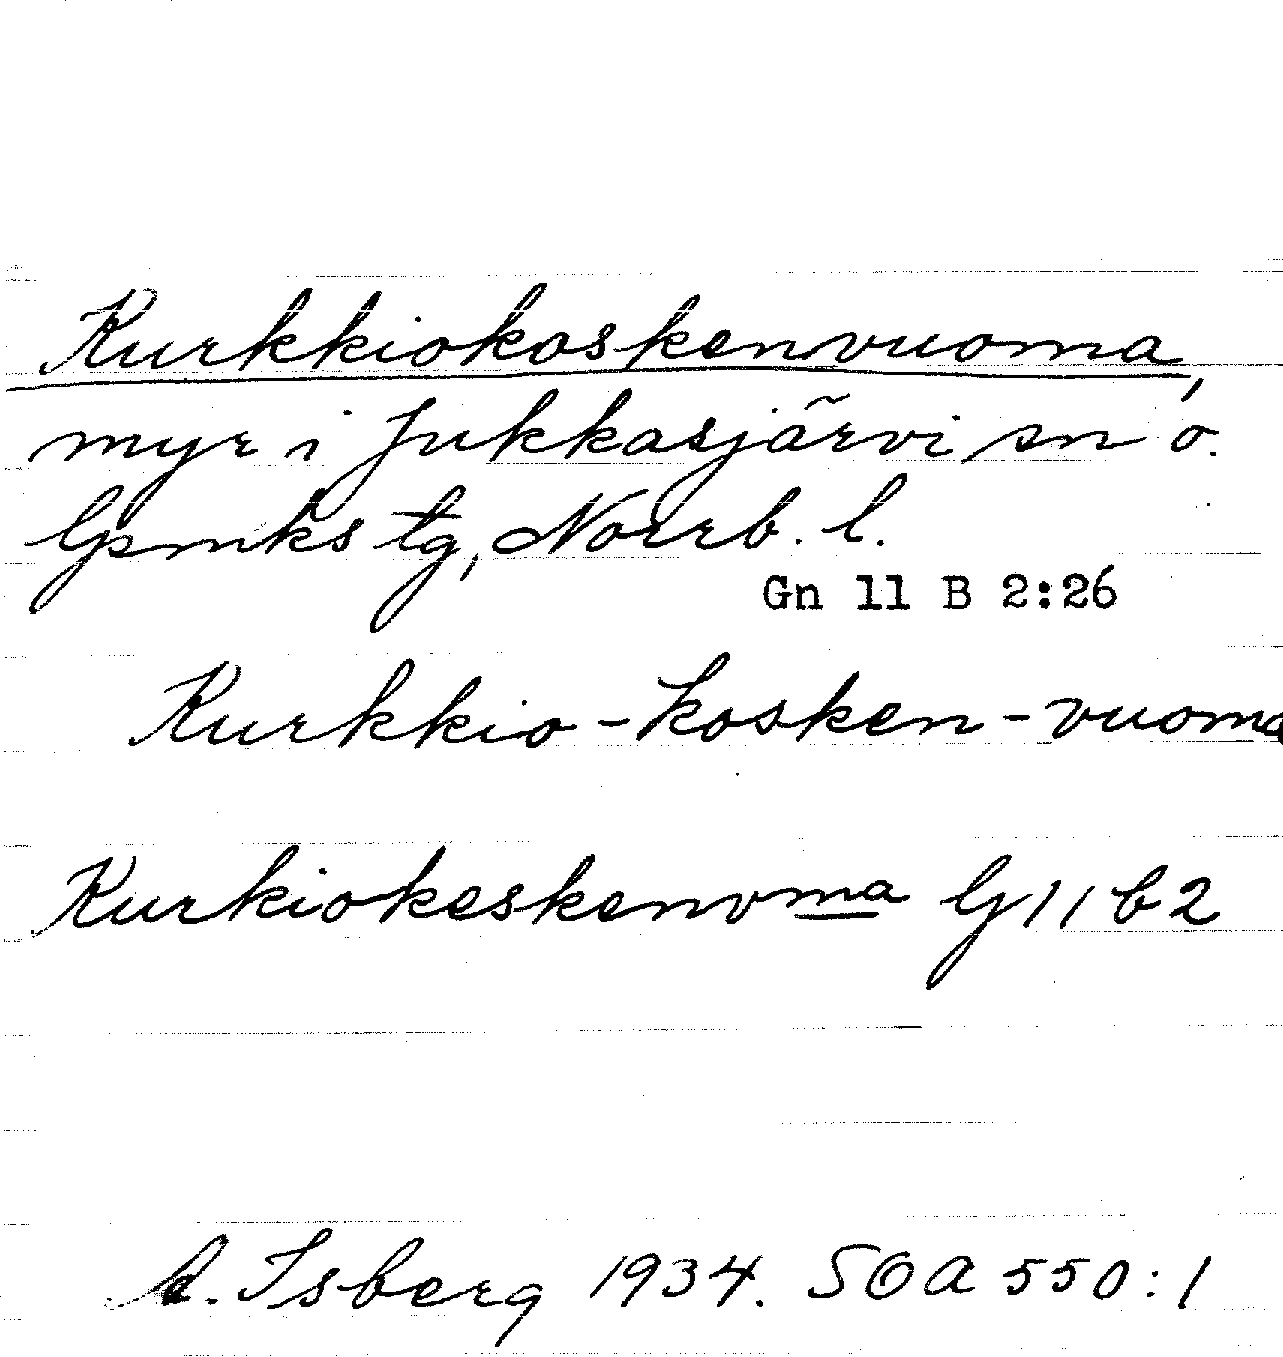 Kurkkiokoskenvuoma,
myr i Jukkasjärvi sn o.
lpmks tg, Norrb. l.
Gn 11 B 2:26
Kurkkio-kosken-vuoma
Kurkiokeskenvma G 11 b 2
A. Isberg 1934. SOA 550:1